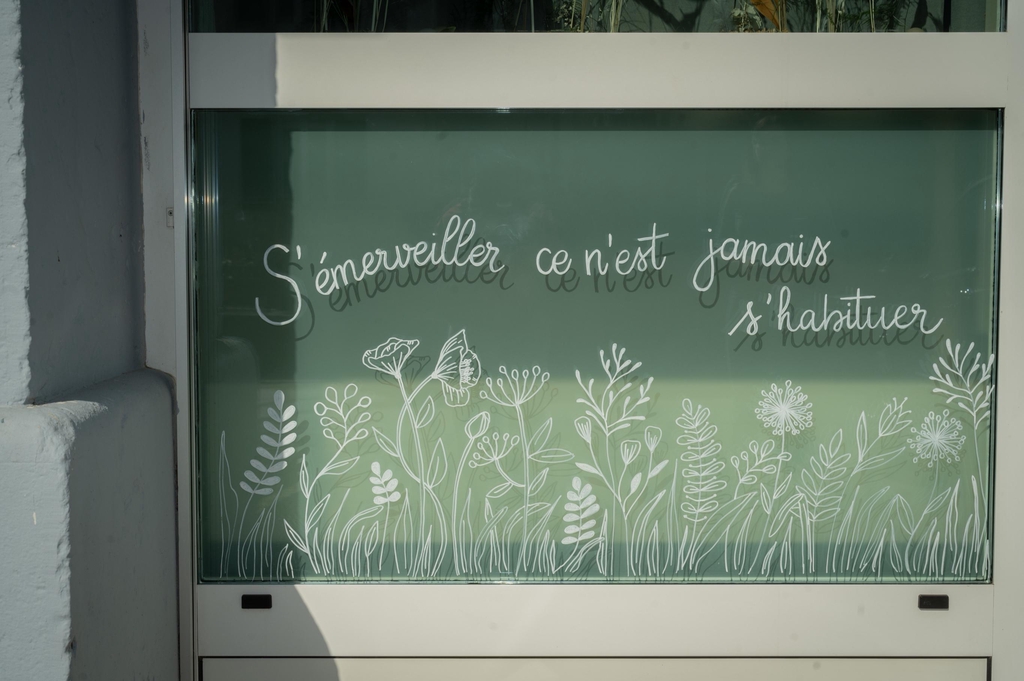 S'émerveiller ce n'est jamais
s'habituer